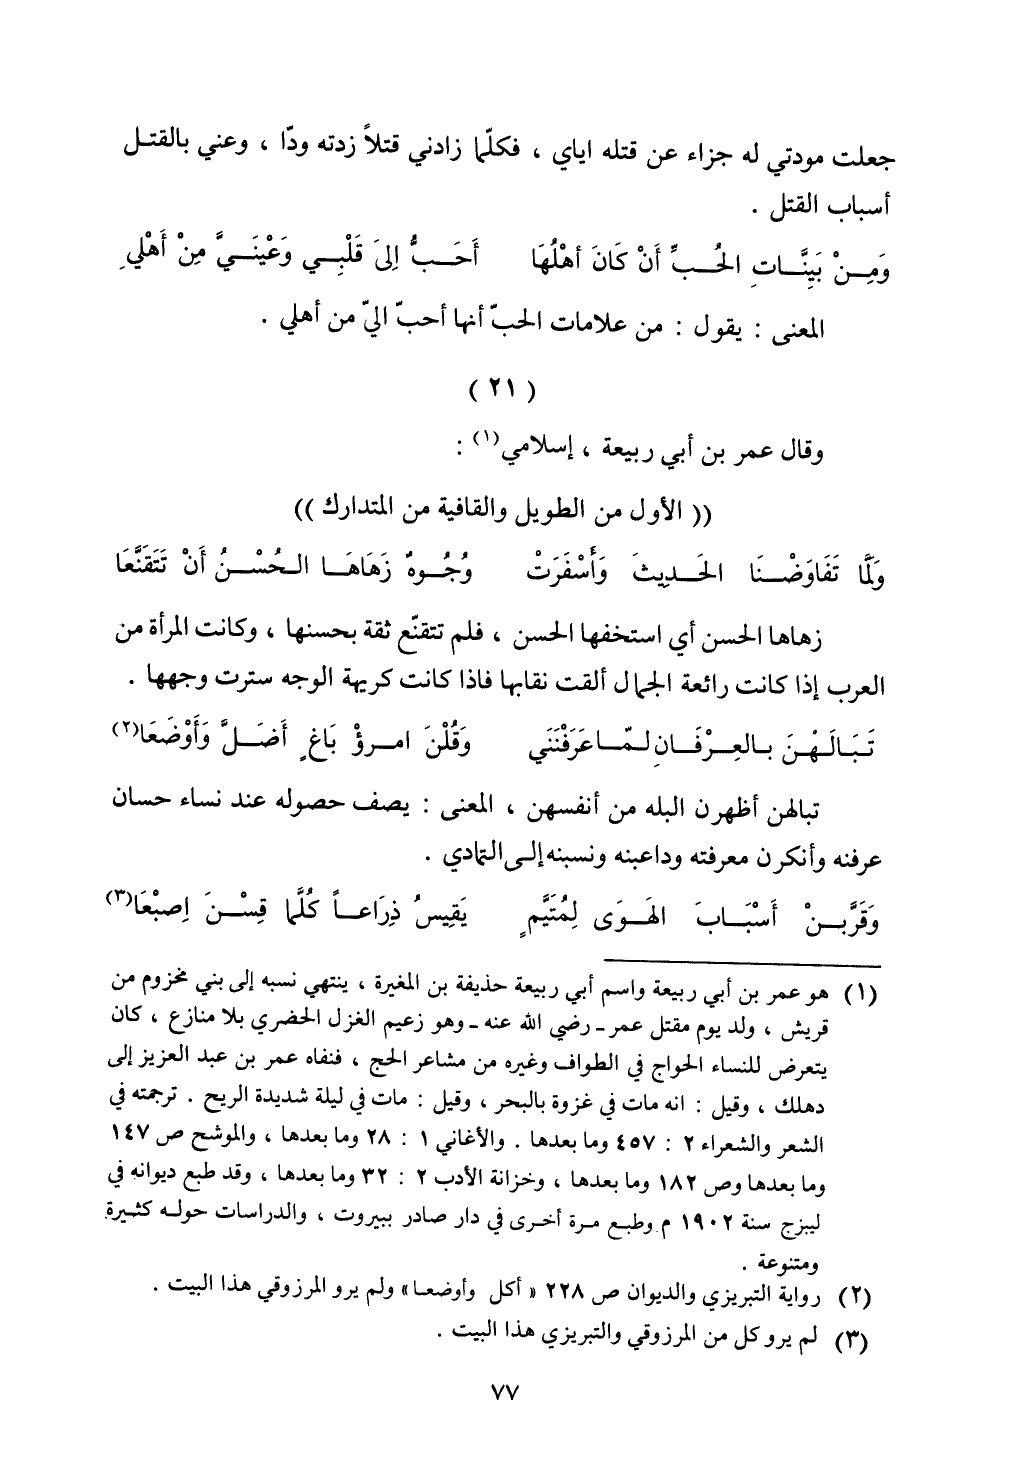 جعلت مودتي له جزاء عن قتله اياي ، فكلّما زادني قتلاً زدته ودّا ، وعني بالقتل
أسباب القتل .
وَمِنْ بَيِّنَاتِ الحُبِّ أَنْ كَانَ أهْلُهَا أَحَبُّ إِلىَ قَلْبِي وَعْيْنَيَّ مِنْ أَهْلي
المعنى : يقول : من علامات الحبّ أنها أحبّ اليّ من أهلي .
( ٢١ )
وقال عمر بن أبي ربيعة ، إسلامي(١) :
(( الأول من الطويل والقافية من المتدارك ))
وَلَمَّا تَفَاوَضْنَا الحَدِيثَ وَأَسْفَرَتْ وُجُوهٌ زَهَاهَا الحُسْنُ أَنْ تَتَقَنَّعَا
زهاها الحسن أي استخفها الحسن ، فلم تتقنّع ثقة بحسنها ، وكانت المرأة من
العرب إذا كانت رائعة الجمال ألقت نقابها فاذا كانت كريهة الوجه سترت وجهها .
تَبَالَهْنَ بالعِرْفَانِ لمّا عَرَفْنَنَي وَقُلْنَ امرؤْ بَاغٍ أَضَلَّ وَأَوْضَعَا(٢)
تبالهن أظهرن البله من أنفسهن ، المعنى : يصف حصوله عند نساء حسان
عرفنه وأنكرن معرفته وداعبنه ونسبنه إلى التمادي .
وَقَرَّبنْ أَسْبَابَ الهَوَى لِمُتَيَّمٍ يَقِيسُ ذِرَاعاً كُلَّما قِسْنَ اِصبْعَا(٣)
(١) هو عمر بن أبي ربيعة واسم أبي ربيعة حذيفة بن المغيرة ، ينتهي نسبه إلى بني مخزوم من
قريش ، ولد يوم مقتل عمر - رضي الله عنه - وهو زعيم الغزل الحضري بلا منازع ، كان
يتعرض للنساء الحواج في الطواف وغيره من مشاعر الحج ، فنفاه عمر بن عبد العزيز إلى
دهلك ، وقيل : انه مات في غزوة بالبحر ، وقيل : مات في ليلة شديدة الريح . ترجمته في
الشعر والشعراء ٢ : ٤٥٧ وما بعدها . والأغاني ١ : ٢٨ وما بعدها ، والموشح ص ١٤٧
وما بعدها وص ١٨٢ وما بعدها ، وخزانة الأدب ٢ : ٣٢ وما بعدها ، وقد طبع ديوانه في
ليبزج سنة ١٩٠٢ م وطبع مرة أخرى في دار صادر ببيروت ، والدراسات حوله كثيرة
ومتنوعة .
(٢) رواية التبريزي والديوان ص ٢٢٨ « أكل وأوضعا» ولم يرو المرزوقي هذا البيت .
(٣) لم يرو كل من المرزوقي والتبريزي هذا البيت .
٧٧